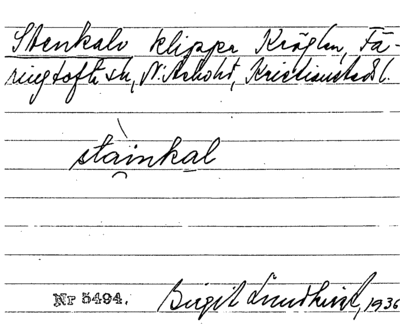 Stenkalv klippa Kröglen, Fä-
ringtofta sn, N. Åsbohd, Kristianstads l.
stainkal
Nr 5494.
Birgit Lundkvist, 1936